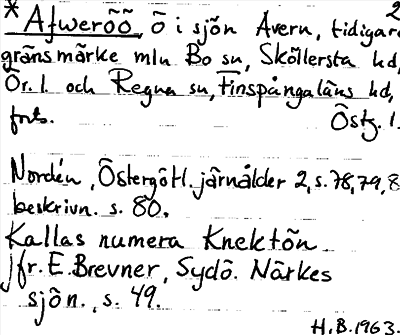 * Afweröö, ö i sjön Avern, tidigare
gränsmärke mln Bo sn, Sköllersta hd,
Ör. l. och Regna sn, Finspångaläns hd,
forts. Östg. l.
Nordén, Östergötl. järnålder 2, s. 78, 79, 8
beskrivn. s. 80.
Kallas numera Knektön
Jfr. E. Brevner, Sydö. Närkes
sjön., s. 49.
H.B. 1963.